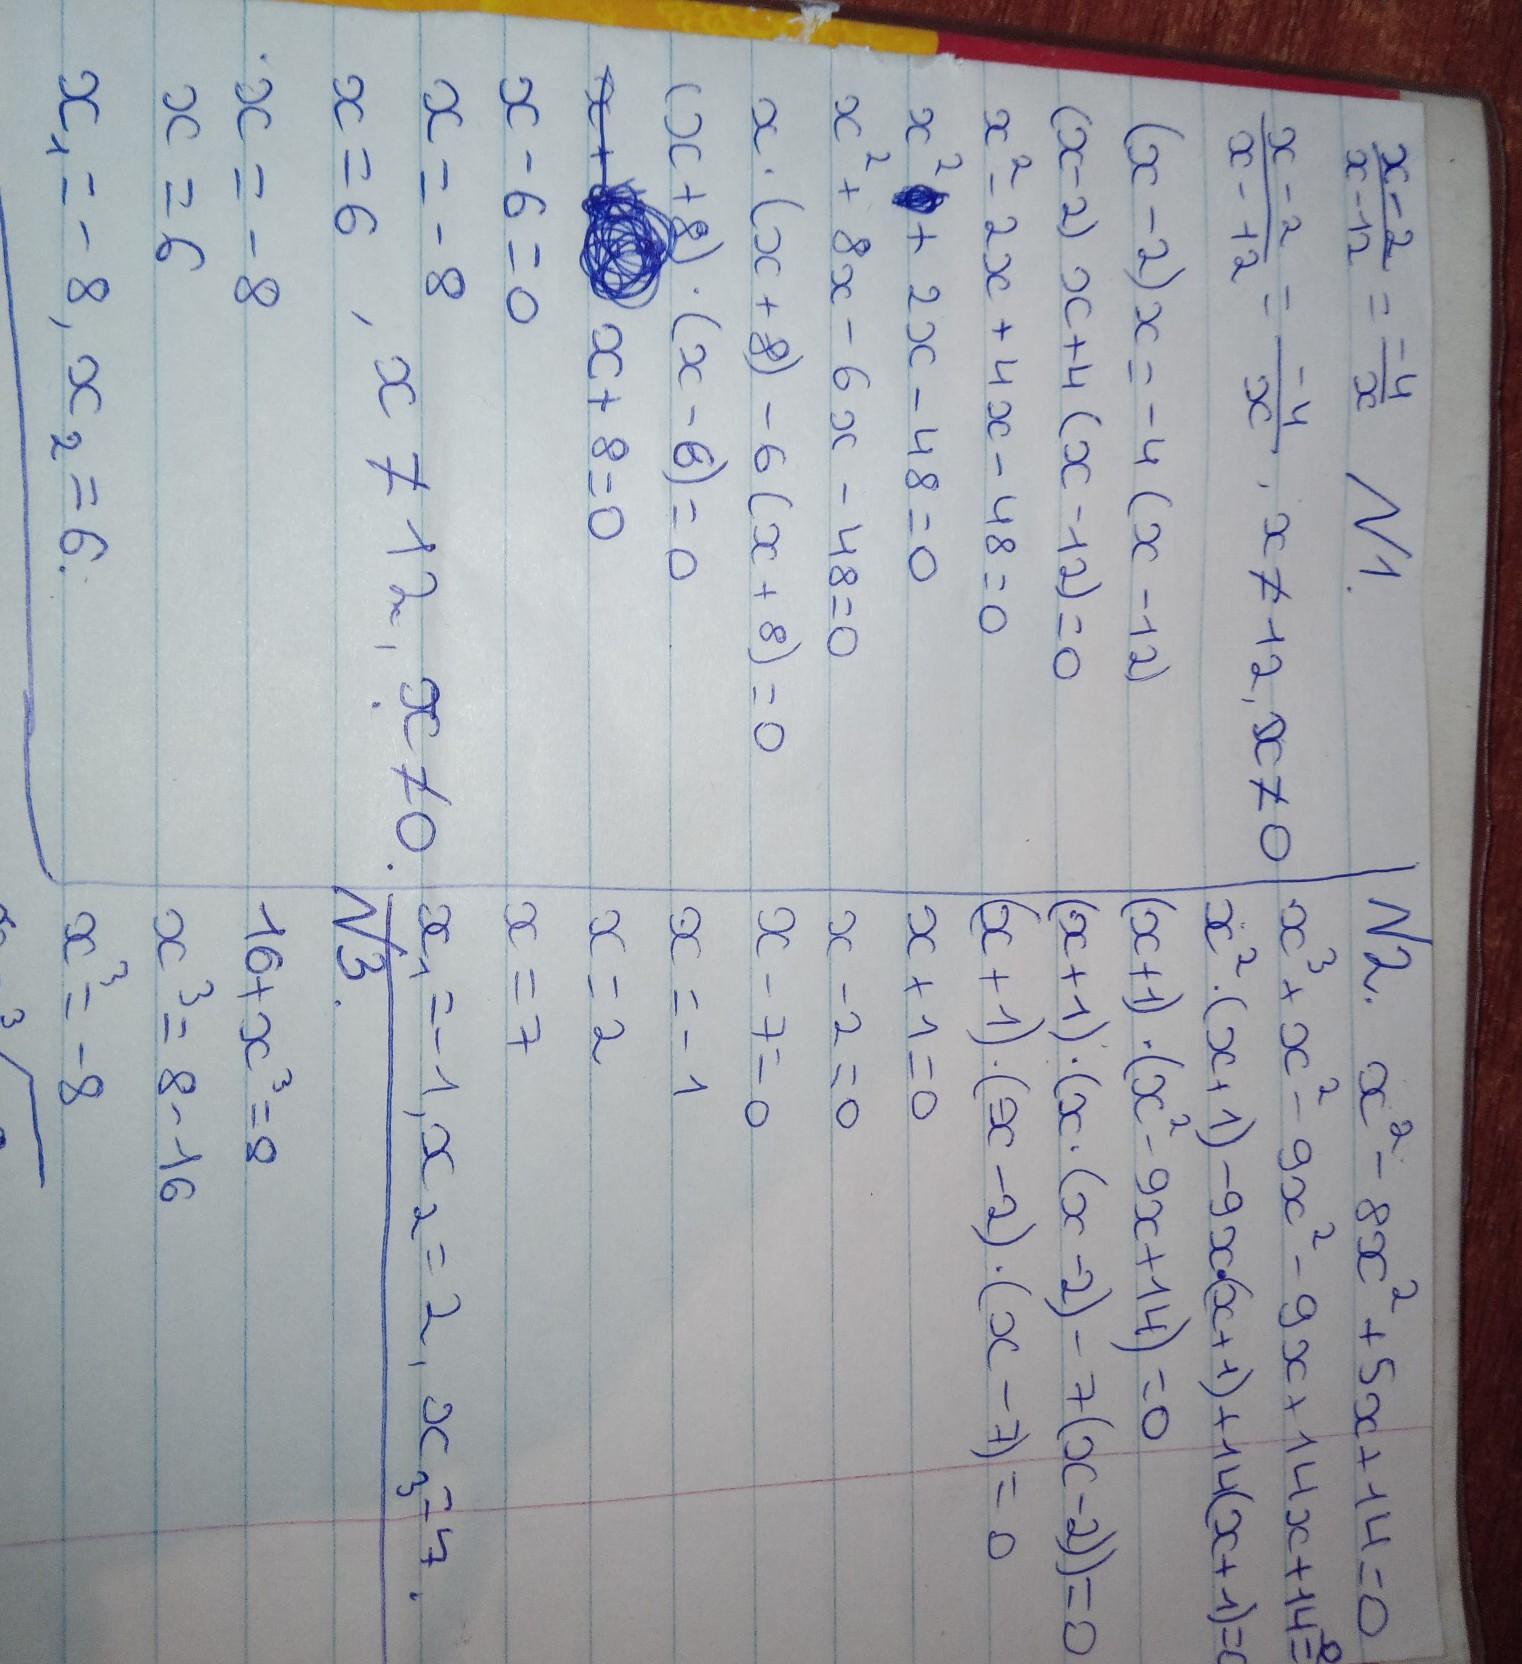 x-2/x-12 = -4/x N1.
x-2/x-12 = -4/x, x≠12, x≠0
(x-2)x=-4(x-12)
(x-2)x+4(x-12)=0
x²-2x+4x-48=0
x²+2x-48=0
x²+8x-6x-48=0
x·(x+8)-6(x+8)=0
(x+8)·(x-6)=0
x+8=0
x-6=0
x=-8
x=6, x≠12, x≠0.
x=-8
x=6
x₁=-8, x₂=6.
N2. x²-8x²+5x+14=0
x³+x²-9x²-9x+14x+14=0
x²·(x+1)-9x·(x+1)+14(x+1)=0
(x+1)·(x²-9x+14)=0
(x+1)·(x·(x-2)-7(x-2))=0
(x+1)·(x-2)·(x-7)=0
x+1=0
x-2=0
x-7=0
x=-1
x=2
x=7
x₁=-1, x₂=2, x₃=7.
N3.
16+x³=8
x³=8-16
x³=-8